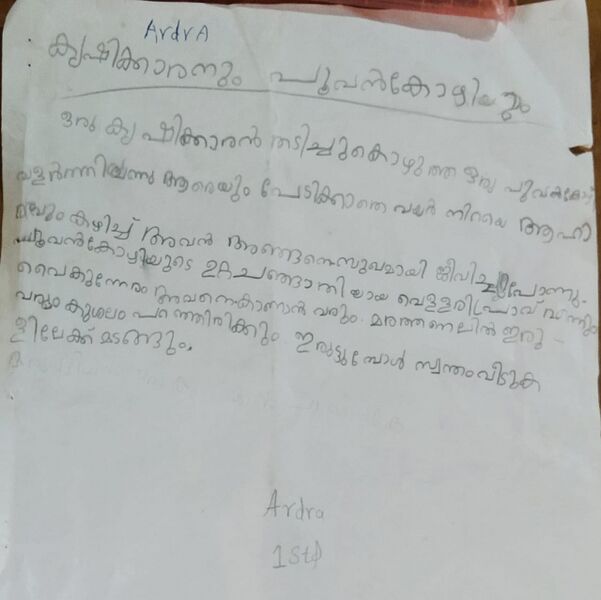 ArdrA
കൃഷിക്കാരനും പൂവൻകോഴിയും
ഒരു കൃഷിക്കാരൻ തടിച്ചുകൊഴുത്ത ഒരു പൂവൻകോഴി
വളർത്തിയിരുന്നു ആരെയും പേടിക്കാതെ വയർ നിറയെ ആഹാ
രവും കഴിച്ച് അവൻ അങ്ങനെസുഖമായി ജീവിച്ചുപോന്നു.
പൂവൻകോഴിയുടെ ഉറ്റചങ്ങാതിയായ വെള്ളരിപ്രാവ് എന്നും
വൈകുന്നേരം അവനെകാണാൻ വരും. മരത്തണലിൽ ഇരു-
വരും കുശലം പറഞ്ഞിരിക്കും. ഇരുട്ടുമ്പോൾ സ്വന്തംവീടുക
ളിലേക്ക് മടങ്ങും.
Ardra
1Std